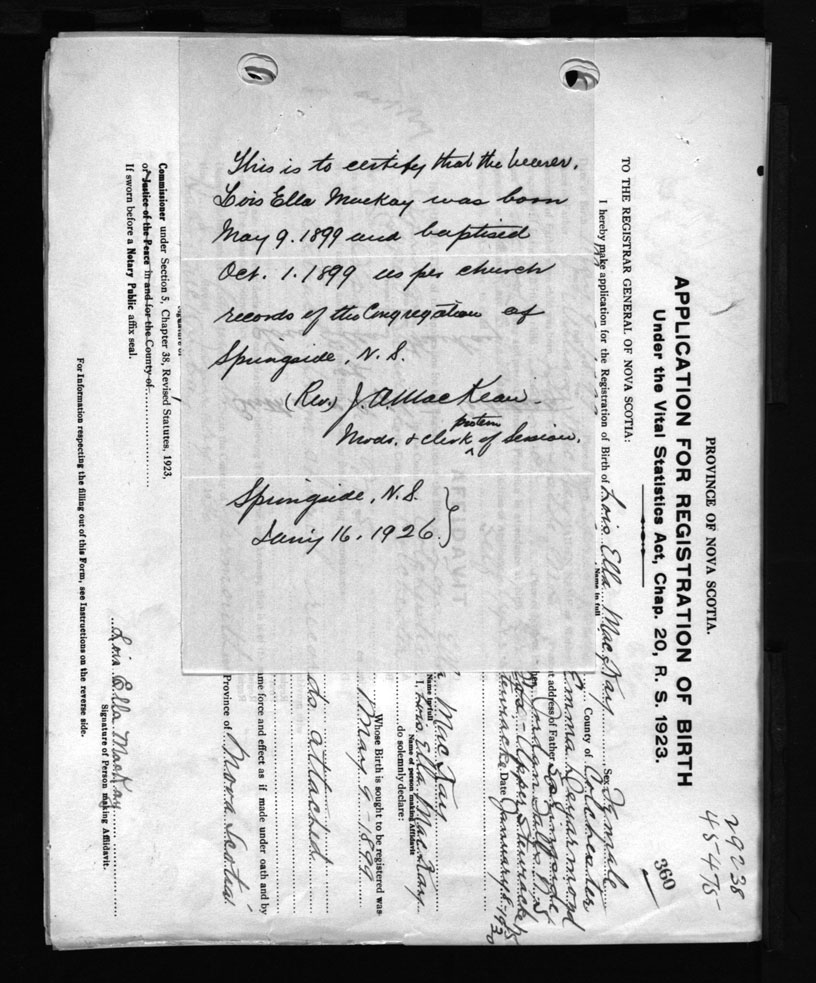 This is to certify that the bearer.
Lois Ella MacKay was born
May 9. 1899 and baptised
Oct. 1. 1899 as per church
records of the Congregation of
Springside, N. S.
(Rev.) J. A. MacKean.
Mods. & clerk protem of Session.
Springside, N.S.
16, 1926.
29238
45475
360
PROVINCE OF NOVA SCOTIA.
APPLICATION FOR REGISTRATION OF BIRTH
Under the Vital Statistics Act, Chap. 20, R. S. 1923.
TO THE REGISTRAR GENERAL OF NOVA SCOTIA:
I hereby make application for the Registration of Birth of Lois Ella MacKay Sex Female
Name in full
County of Colchester
Emma
address of Father
Upper Stewiacke
Stewiacke Date January
MacKay
Name in full
I, Lois Ella MacKay
Name of person making Affidavit
do solemnly declare:
Whose Birth is sought to be registered was
May 9 - 1899
records attached
same force and effect as if made under oath and by
Province of Nova Scotia
Signature of
Commissioner under Section 5, Chapter 38, Revised Statutes, 1923,
or Justice of the Peace in and for the County of
If sworn before a Notary Public affix seal.
Lois Ella MacKay
Signature of Person making Affidavit.
For Information respecting the filling out of this Form, see Instructions on the reverse side.